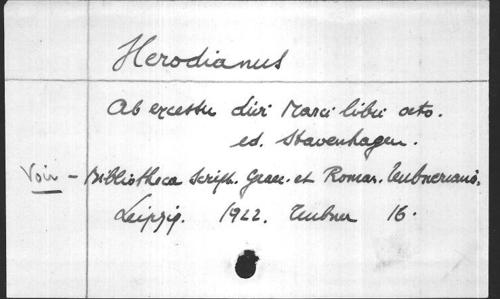 Herodianus
Ab excessu divi Marci libri octo.
ed. Stavenhagen.
Voir - Bibliotheca Script. Graec. et Roman. Teubneriana.
Leipzig. 1922. Teubner 16.